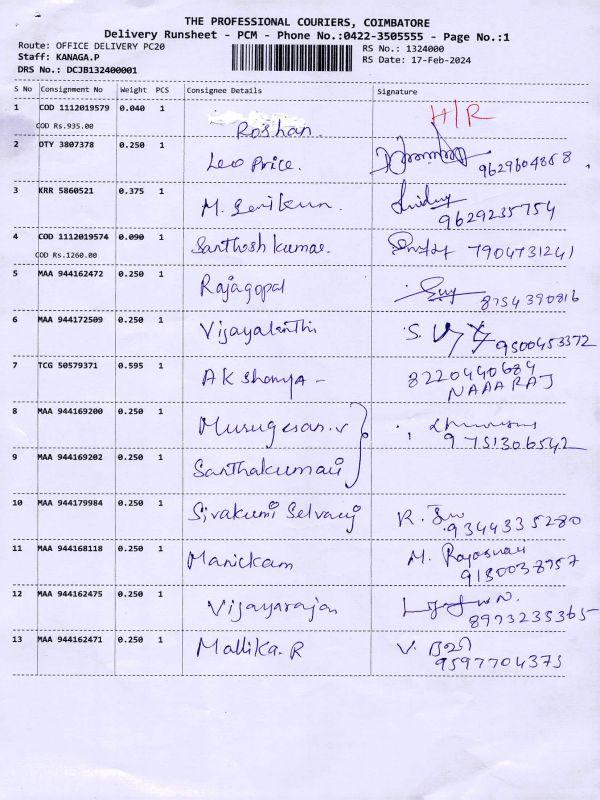 THE PROFESSIONAL COURIERS, COIMBATORE
Delivery Runsheet - PCM - Phone No.:0422-3505555 - Page No.:1
Route: OFFICE DELIVERY PC20 RS No.: 1324000
Staff: KANAGA.P RS Date: 17-Feb-2024
DRS No.: DCJB132400001
S No Consignment No Weight PCS Consignee Details Signature
1 COD 1112019579 0.040 1 H/R
COD Rs.935.00 Roshan.
2 DTY 3807378 0.250 1 Leo Price. 9629604868
3 KRR 5860521 0.375 1 M. 9629235754
4 COD 1112019574 0.090 1 Santhosh kumar. 7904731241
COD Rs.1260.00
5 MAA 944162472 0.250 1 Rajagopal 8754390816
6 MAA 944172509 0.250 1 Vijayalanthi S. 9500453372
7 TCG 50579371 0.595 1 A K Shanya - 8220440684
NAAARAJ
8 MAA 944169200 0.250 1 Murugesan. v
9751306542
9 MAA 944169202 0.250 1 Santhakumari
10 MAA 944179984 0.250 1 Sivakumi Selvaraj R. 9344335280
11 MAA 944168118 0.250 1 Manickam M.
9130038957
12 MAA 944162475 0.250 1 Vijayarajan
8973235365
13 MAA 944162471 0.250 1 Mallika. R V.
9597704373